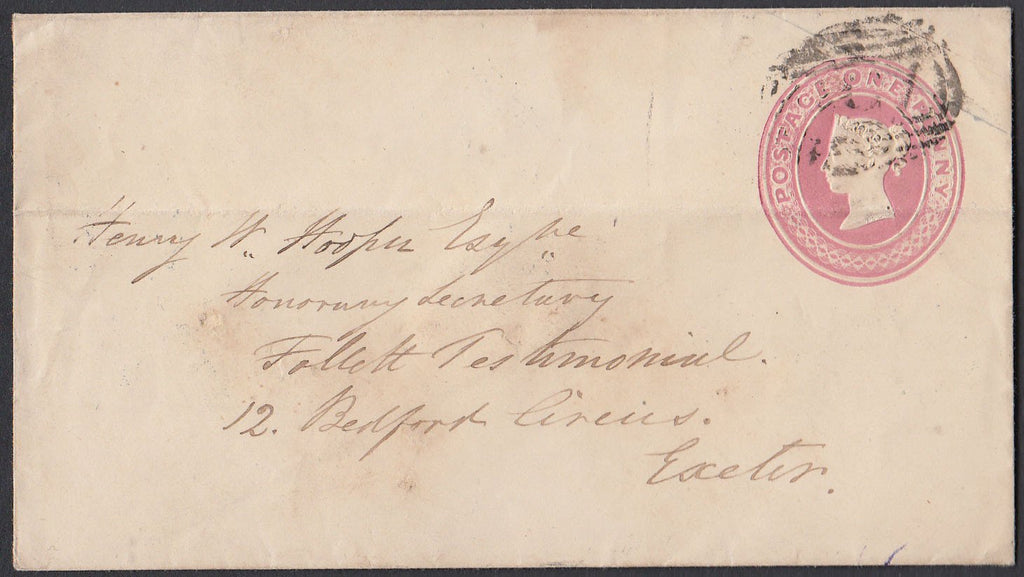 POSTAGE ONE PENNY
Henry W. Hooper Esqre
Honorary Secretary
Follett Testimonial.
12. Bedford Circus.
Exeter.